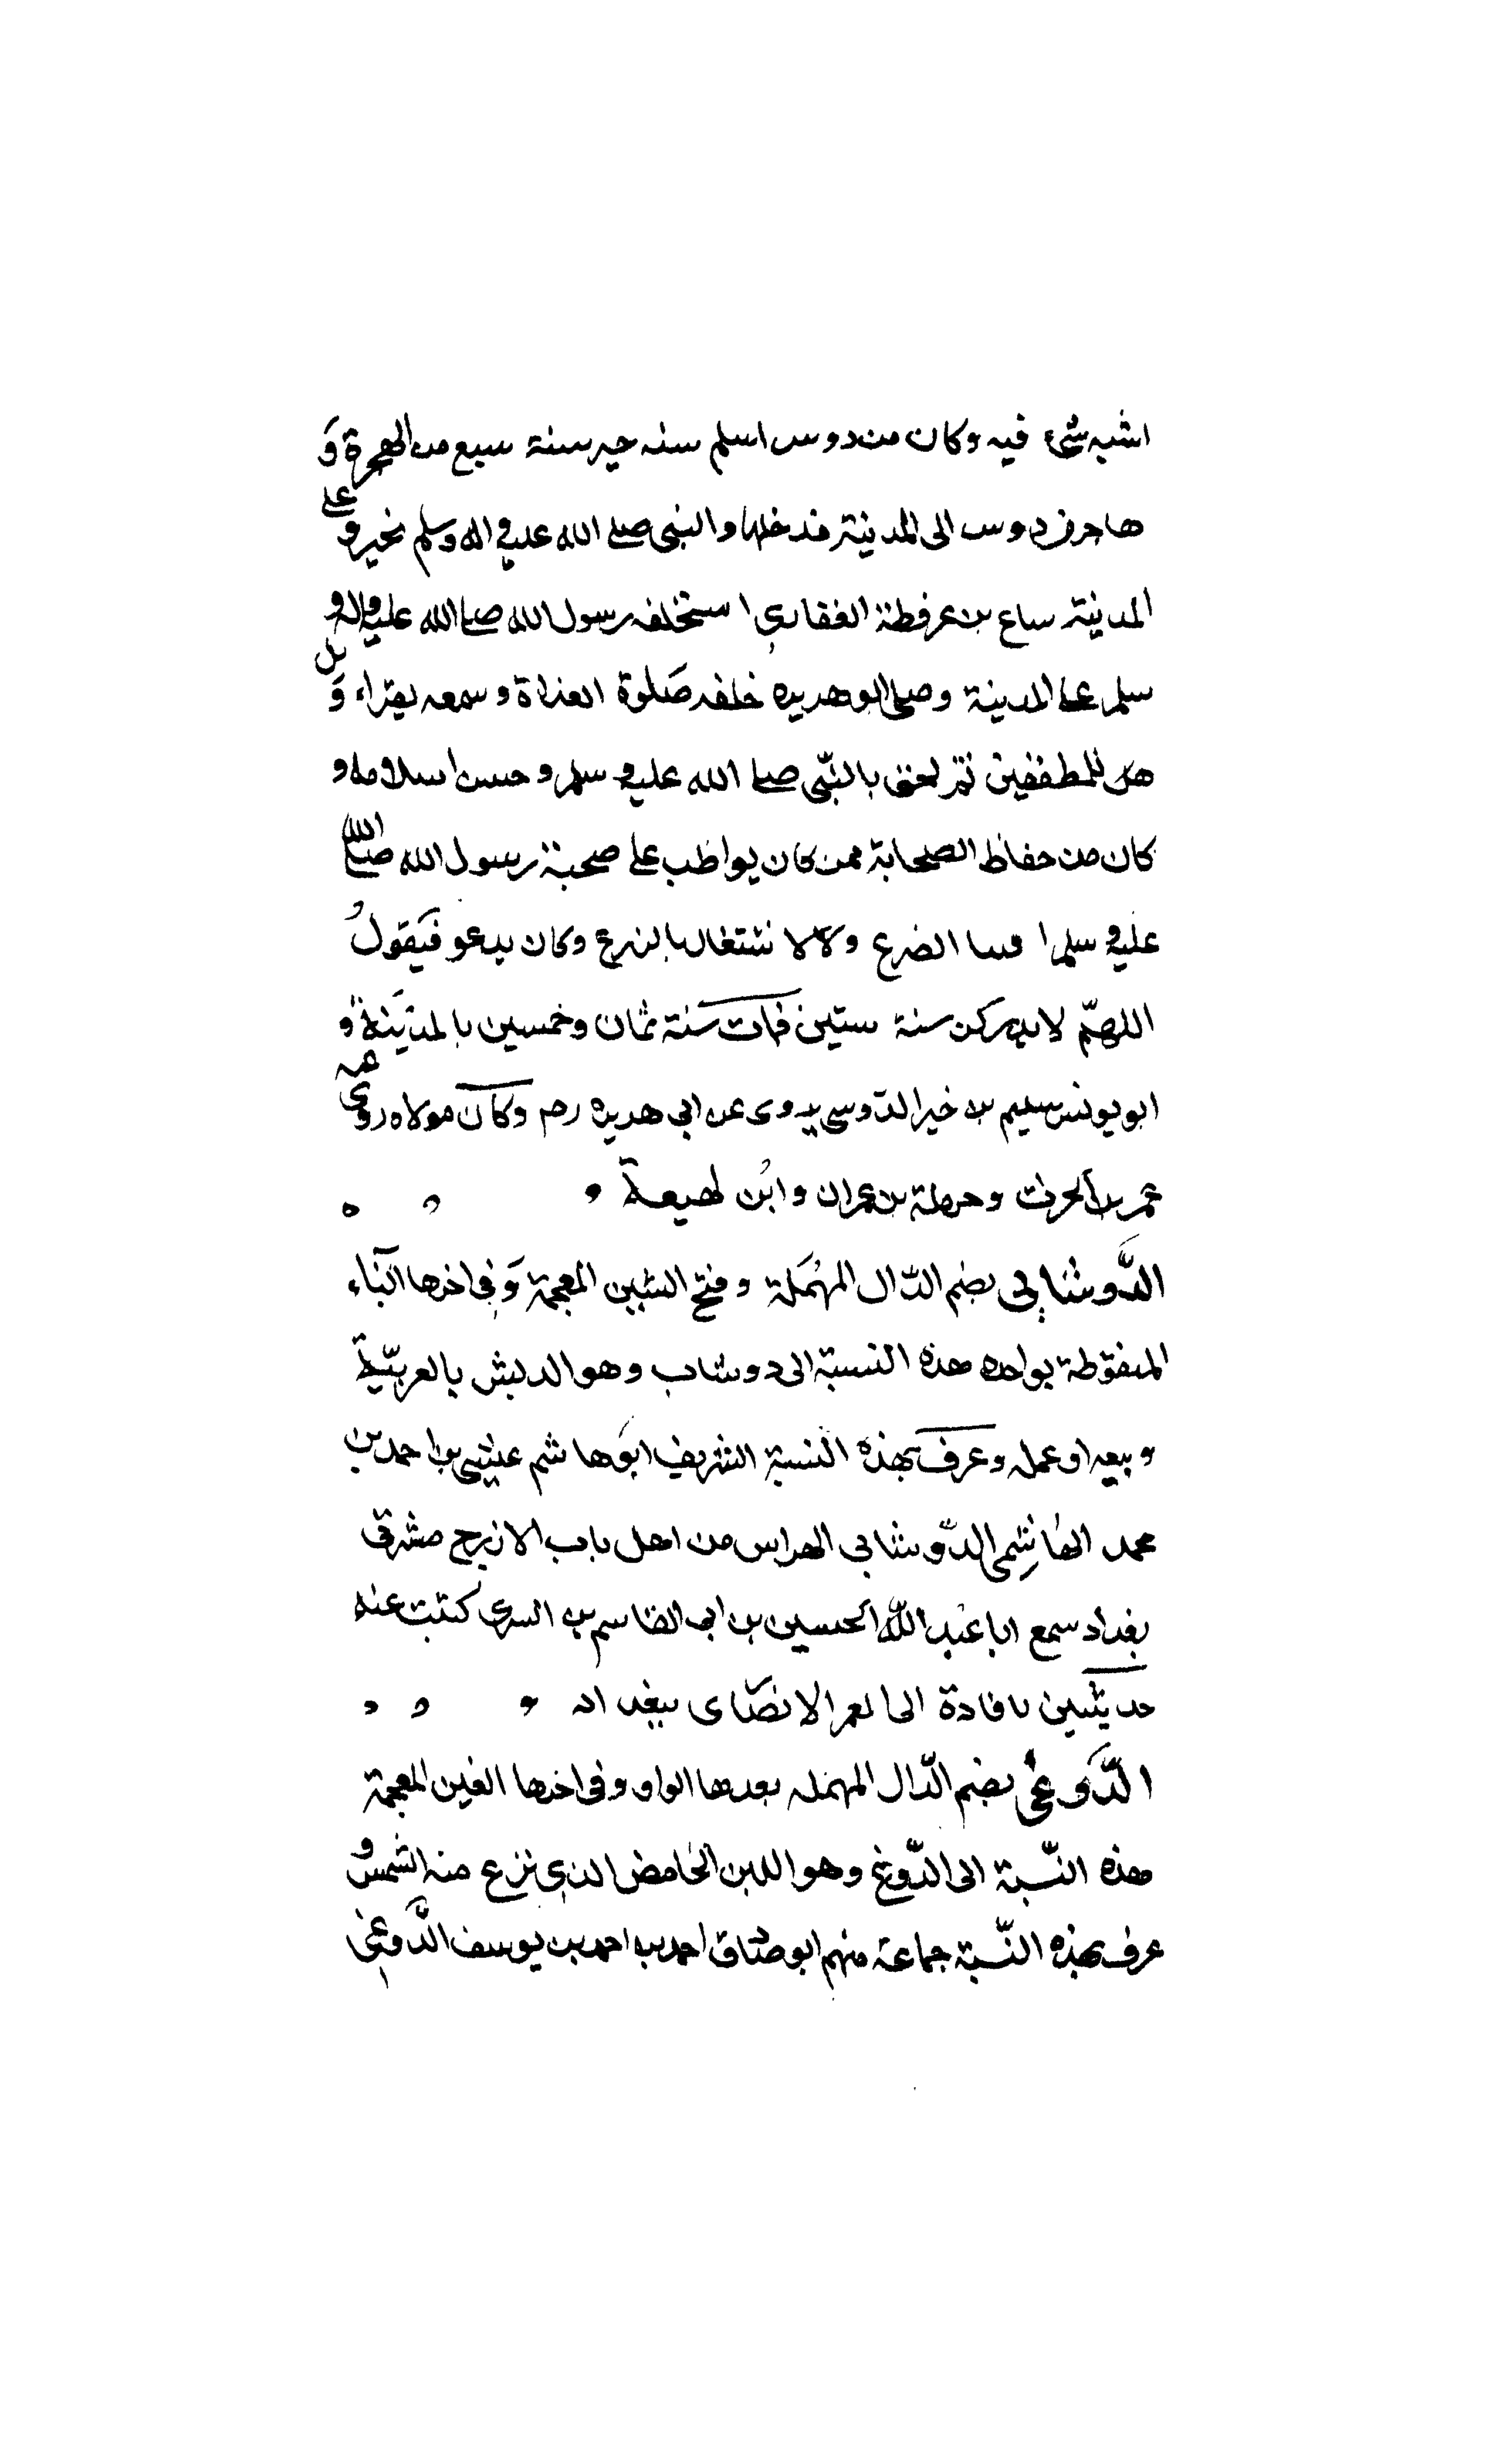 اشبه شئ فيه وكان من دوس اسلم سنه خيبر سنة سبع من الهجرة وَ
هاجر من دوس الى المدينة فدخلها والنبى صلے الله عليه واله وسلم بخيبر و علے
المدينة سباع بن عرفطة الغفاري استخلفه رسول الله صلے الله عليه واله و
سلم على المدينة وصلى ابو هريره خلفه صَلوة الغداة وسمعه يقراء وَيل
للمطففين ثم لحق بالنّبى صلے الله عليه و سلم و حسن اسلامه و
كان من حفاظ الصحابة ممن كان يواظب على صحبة رسول الله صلے الله
عليه و سلم الضرع ولا لا نشتغال بالزرع وكان يدعو فيَقولُ
اللهمّ لا يدركن سنة ستين فمات سنة ثمان وخمسين بالمديَنة وَ
ابو يونس سليم بن خير الدّوسى يروى عن ابى هريره رحم وكان مولاه روى عنه
عمر بن الحرث وحرملة بن عمران وابُن لهيعة
الدُّوشَابى بضم الدّال المهُمَلة وفتح الشين المعجمة وَفى اخرها البَاء
المنقوطة بواحده هذه النسبة الى دوشاب وهو الدبش بالعربيّة
وبيعه او عمله وعرف بهذه النسبة الشريف ابوَ هاشم عيسى بن احمد بن
محمد الهَاشِمى الدّوشابى الهراس من اهل باب الازرج مشرقى
بغداد سمع ابا عَبد اللّه الحسين بن ابى القاسم بن السرى كتبت عنه
حديثين بافادة ابى المعمر الانصَاى ببغداد
الدُّوغى بضم الدّال المهمله بعدها الواو وفى اخرها الغين المعجمة
هذه النّسبة الى الدّوغ وهو اللبن الحَامض الذى نزع منه الشمس و
عرف بهذه النّسبة جماعة منهم ابو صَادق احمد بن احمد بن يوسف الدُّوغى